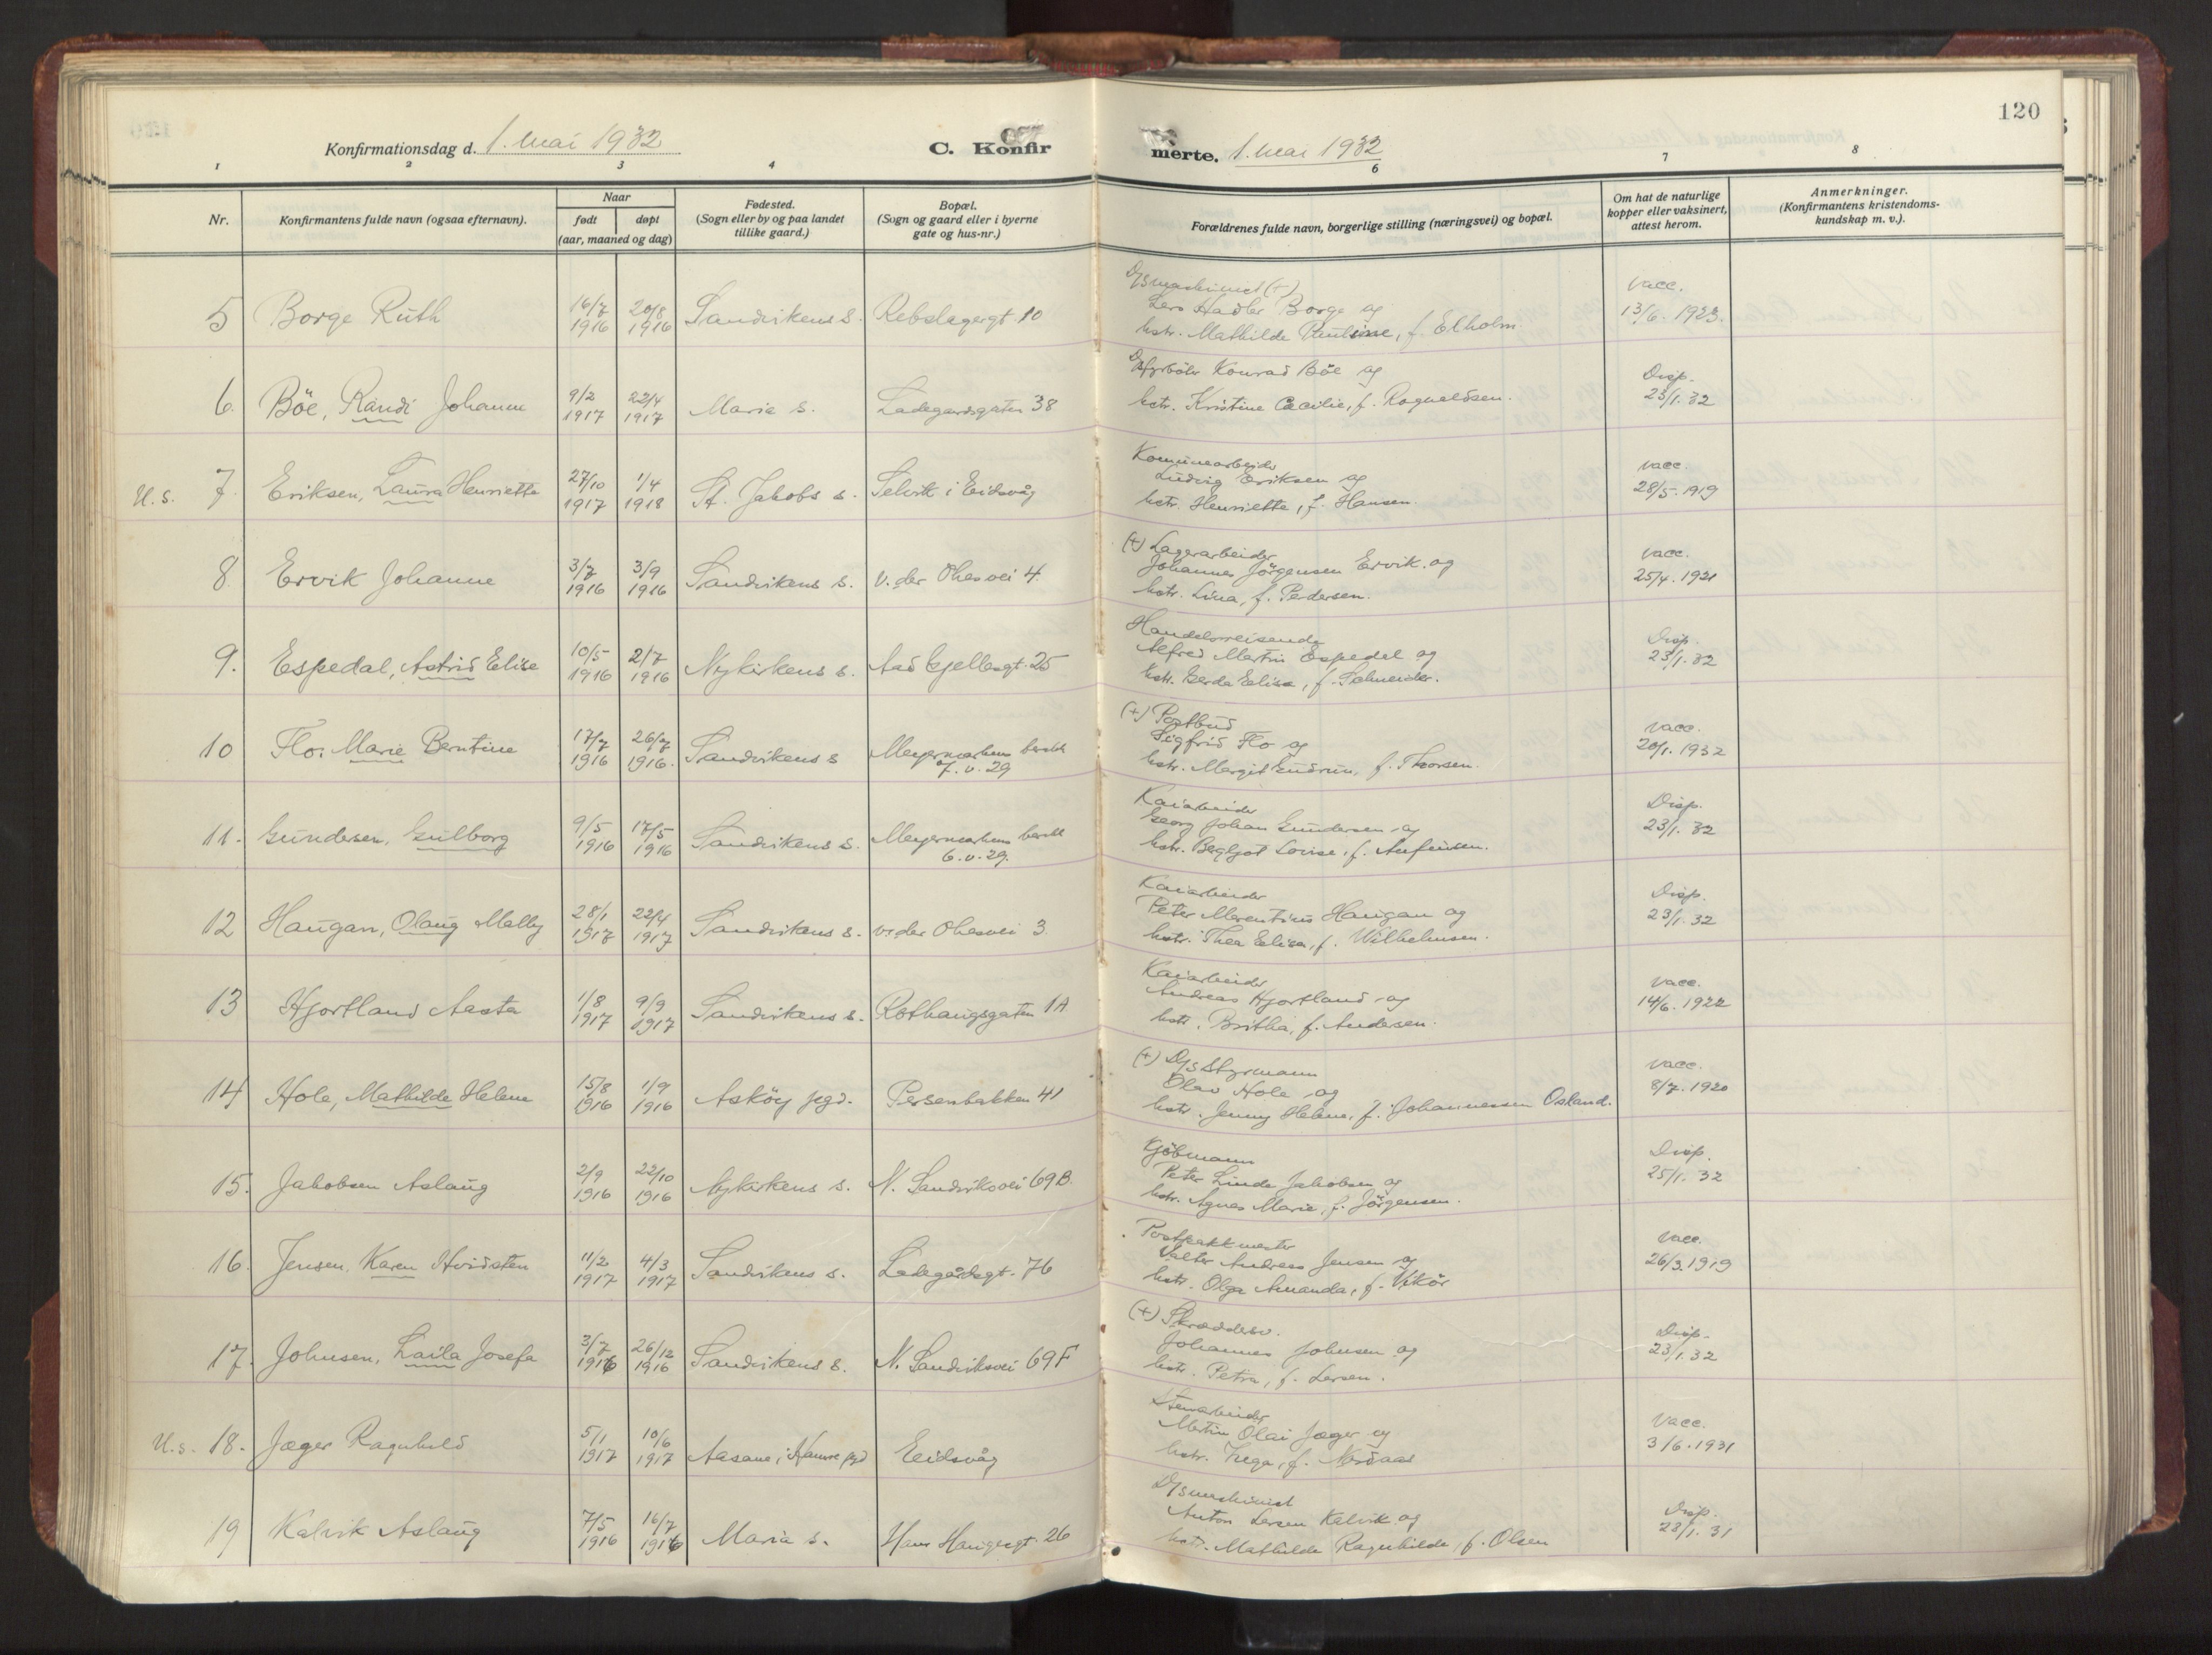 120
Konfirmationsdag d. 1. mai 1932
C. Konfirmerte. 1. mai 1932
1 2 3 4 6 7 8
Nr.
Konfirmantens fulde navn (ogsaa efternavn).
Naar
født døpt
(aar, maaned og dag)
Fødested.
(Sogn eller by og paa landet
tillike gaard.)
Bopæl.
(Sogn og gaard eller i byerne
gate og hus-nr.)
Forældrenes fulde navn, borgerlige stilling (næringsvei) og bopæl.
Om hat de naturlige
kopper eller vaksinert,
attest herom.
Anmerkninger.
(Konfirmantens kristendoms-
kundskap m. v.).
5 Borge Ruth 16/7 1916 20/8 1916 Sandvikens s. Rebslagergt 10
D/S maskinist (+)
Lars Hadler Borge og
hstr. Mathilde Pauline, f. Elholm
vacc.
13/6. 1923.
6. Böe, Randi Johanne 9/2 1917 22/4 1917 Maria s. Ladegaardsgaten 38
D/S fyrböter Konrad Böe og
hstr. Kristine Cecilie, f. Ragnvaldsen.
Disp.
23/1. 32
U. s. 7. Eriksen, Laura Henriette 27/10 1917 1/4 1918 St. Jakobs s. Selvik i Eidsvåg
Kommunearbeider
Ludvig Eriksen og
hstr. Henriette, f. Hansen.
vacc.
28/5. 1919
8 Ervik Johanne 3/7 1916 3/9 1916 Sandvikens s. v. der Ohesvei 4.
(+) Lagerarbeider
Johannes Jörgensen Ervik og
hstr. Lina, f. Pedersen.
vacc.
25/4. 1921
9. Espedal, Astrid Elise 10/5 1916 2/7 1916 Nykirkens s. Aad Gjellesgt. 25
Handelsreisende
Alfred Martin Espedal og
hstr. Gerda Elise, f. Schneider.
Disp.
23/1. 32
10 Flo, Marie Berntine 17/7 1916 26/7 1916. Sandvikens s
7. v. 29
(+) Postbud
Sigfrid Flo og
hstr. Margit Gudrun, f. Thorsen.
vacc.
20/1. 1932
11. Gundersen, Gulborg 9/5 1916 17/5 1916 Sandvikens s.
6. v. 29.
Kaiarbeider
Georg Johan Gundersen og
hstr. Bergljot Lovise, f. Anfinsen.
Disp.
23/1. 32
12 Haugan, Olaug Mally 28/1 1917 22/4 1917 Sandvikens s. v. der Ohesvei 3.
Kaiarbeider
Peter Merentius Haugan og
hstr. Thea Elisa, f. Wilhelmsen.
Disp.
23/1. 32
13 Hjortland Aasta 1/8 1917 9/9 1917 Sandvikens s. Rothaugsgaten 1A
Kaiarbeider
Andreas Hjortland og
hstr. Britha, f. Andersen.
vacc.
14/6. 1922
14 Hole, Mathilde Helene 15/8 1916 1/9 1916 Asköy pgd. Persenbakken 41
(+) D/S Styrmann
Olav Hole og
hstr. Jenny Helene, f. Johannessen Oskand.
vacc.
8/7. 1920
15. Jakobsen Aslaug 2/9 1916 22/10 1916 Nykirkens s. N. Sandviksvei 69B.
Kjöbmann
Peter Linde Jakobsen og
hstr. Agnes Marie, f. Jörgensen.
Disp.
25/1. 32
16. Jensen, Karen Hvidsten 11/2 1917 4/3 1917 Sandvikens s. Ladegårdsgt. 76
Postpakkmester
Valter Andreas Jensen og
hstr. Olga Amanda, f. Vikör
vacc.
26/3. 1919
17. Johnsen, Laila Josefa 3/7 1916 26/12 1916 Sandvikens s. N. Sandviksvei 69F
(+) Skræddersv.
Johannes Johnsen og
hstr. Petra, f. Larsen.
Disp.
23/1. 32
U. s. 18. Jæger Ragnhild 5/1 1917 10/6 1917 Aasane i Hamre pgd Eidsvåg
Stenarbeider
Martin Olai Jæger og
hstr. Inga, f. Nordaas
vacc.
3/6. 1931
19 Kalvik Aslaug 7/5 1916 16/7 1916 Maria s. Hans Haugesgt. 26
D/S maskinist
Anton Larsen Kalvik og
hstr. Mathilde Ragnhilde, f. Olsen
Disp.
28/1. 31